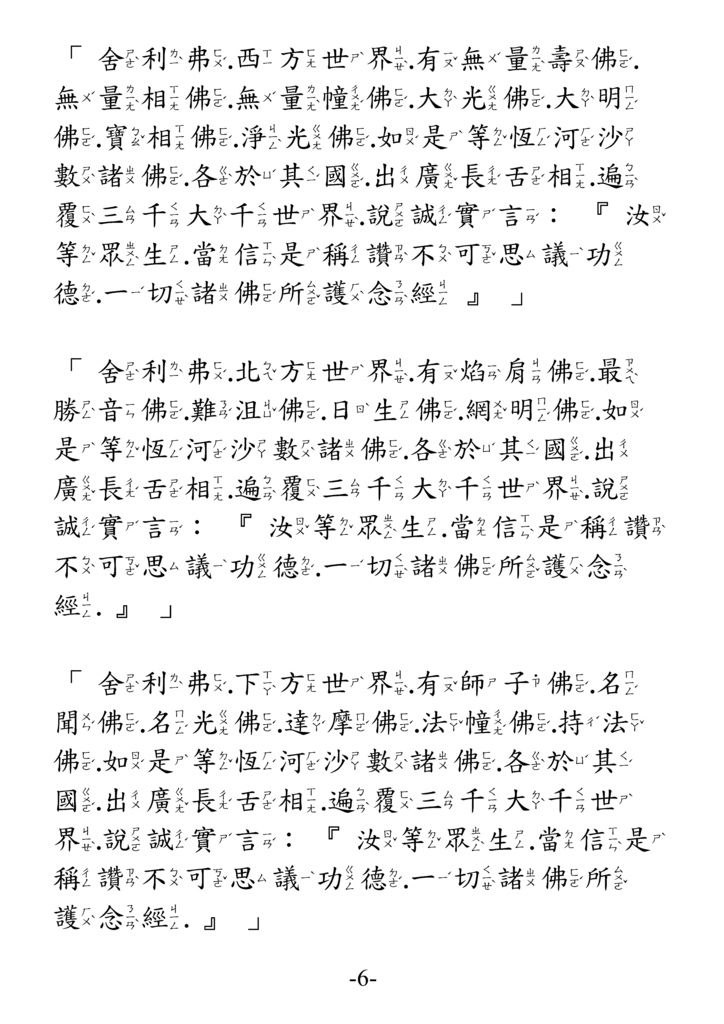 「 舍利弗.西方世界.有無量壽佛.
無量相佛.無量幢佛.大光佛.大明
佛.寶相佛.淨光佛.如是等恆河沙
數諸佛.各於其國.出廣長舌相.遍
覆三千大千世界.說誠實言： 『 汝
等眾生.當信是稱讚不可思議功
德.一切諸佛所護念經 』 」
「 舍利弗.北方世界.有焰肩佛.最
勝音佛.難沮佛.日生佛.網明佛.如
是等恆河沙數諸佛.各於其國.出
廣長舌相.遍覆三千大千世界.說
誠實言： 『 汝等眾生.當信是稱讚
不可思議功德.一切諸佛所護念
經. 』 」
「 舍利弗.下方世界.有師子佛.名
聞佛.名光佛.達摩佛.法幢佛.持法
佛.如是等恆河沙數諸佛.各於其
國.出廣長舌相.遍覆三千大千世
界.說誠實言： 『 汝等眾生.當信是
稱讚不可思議功德.一切諸佛所
護念經. 』 」
-6-